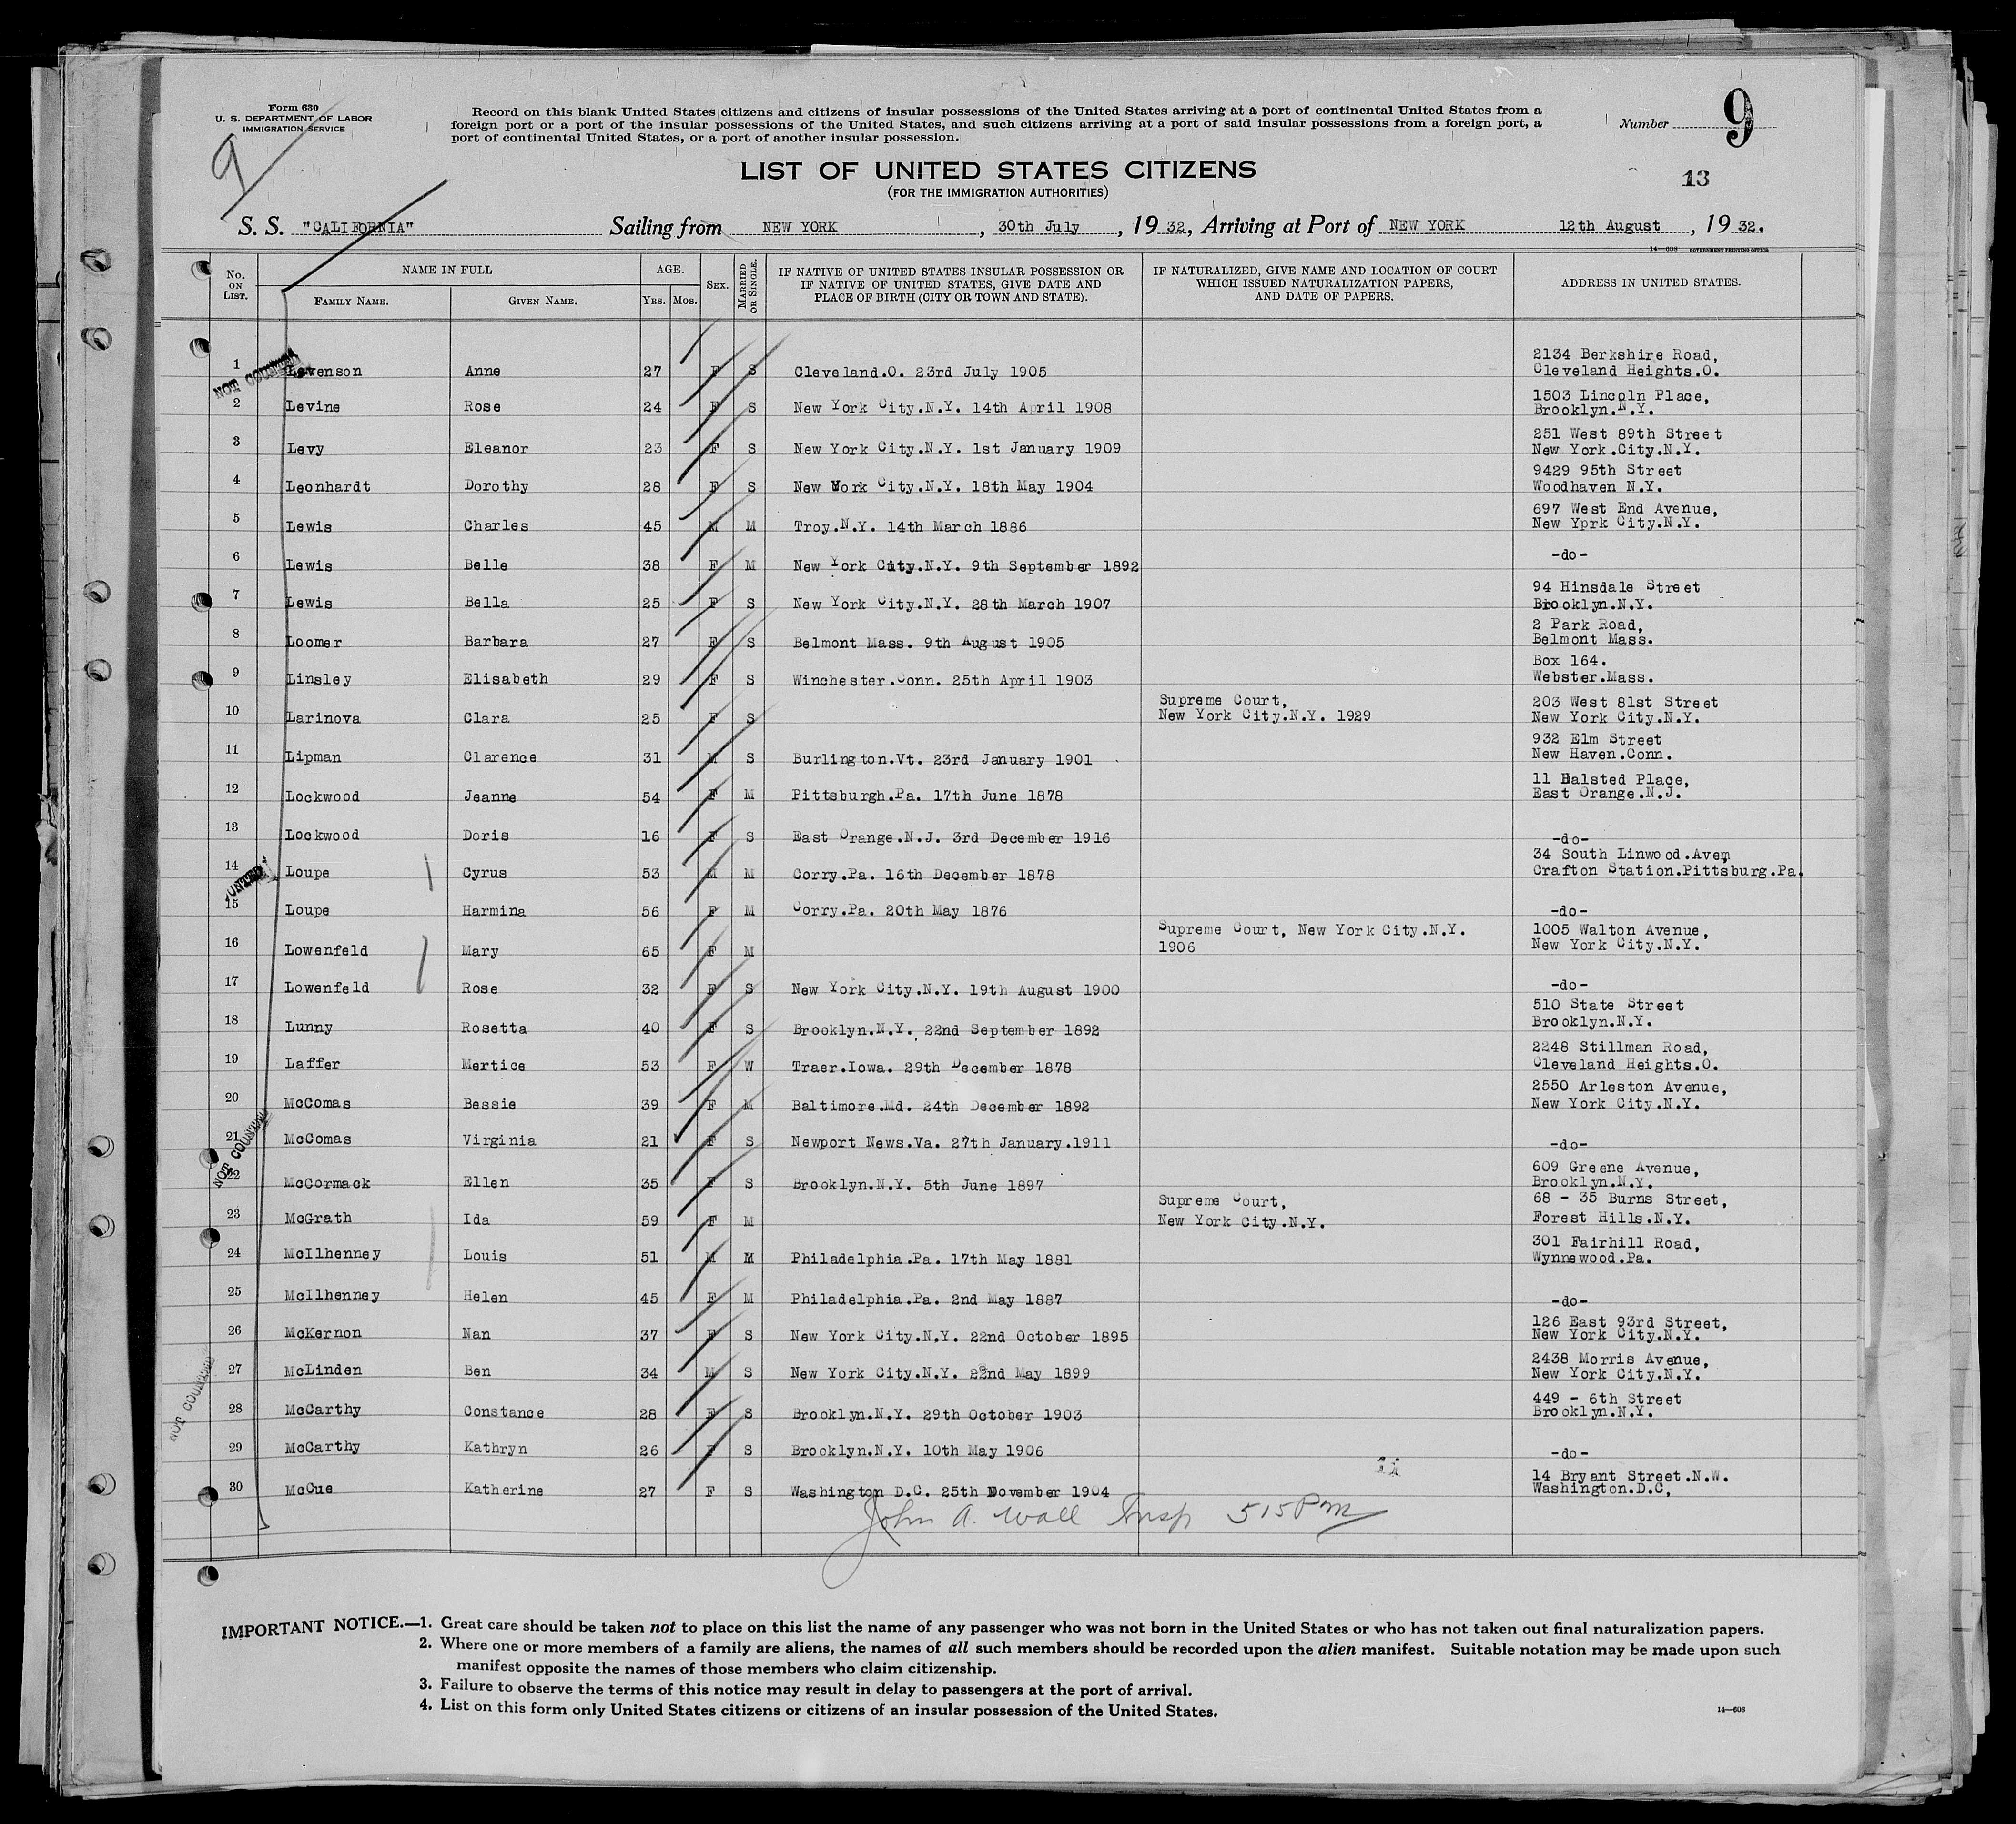 Form 630
U. S. DEPARTMENT OF LABOR
IMMIGRATION SERVICE
9
Record on this blank United States citizens and citizens of insular possessions of the United States arriving at a port of continental United States from a
foreign port or a port of the insular possessions of the United States, and such citizens arriving at a port of said insular possessions from a foreign port, a
port of continental United States, or a port of another insular possession.
Number 9
13
LIST OF UNITED STATES CITIZENS
(FOR THE IMMIGRATION AUTHORITIES)
S. S. "CALIFORNIA" Sailing from NEW YORK, 30th July, 1932, Arriving at Port of NEW YORK 12th August, 1932.
14—608 GOVERNMENT PRINTING OFFICE
No. ON LIST. NAME IN FULL FAMILY NAME. GIVEN NAME. AGE. YRS. MOS. SEX. MARRIED OR SINGLE. IF NATIVE OF UNITED STATES INSULAR POSSESSION OR IF NATIVE OF UNITED STATES, GIVE DATE AND PLACE OF BIRTH (CITY OR TOWN AND STATE). IF NATURALIZED, GIVE NAME AND LOCATION OF COURT WHICH ISSUED NATURALIZATION PAPERS, AND DATE OF PAPERS. ADDRESS IN UNITED STATES.
NOT COUNTED
1 Levenson Anne 27 F S Cleveland.O. 23rd July 1905 2134 Berkshire Road, Cleveland Heights.O.
2 Levine Rose 24 F S New York City.N.Y. 14th April 1908 1503 Lincoln Place, Brooklyn.N.Y.
3 Levy Eleanor 23 F S New York City.N.Y. 1st January 1909 251 West 89th Street New York.City.N.Y.
4 Leonhardt Dorothy 28 F S New York City.N.Y. 18th May 1904 9429 95th Street Woodhaven N.Y.
5 Lewis Charles 45 M M Troy.N.Y. 14th March 1886 697 West End Avenue, New Yprk City.N.Y.
6 Lewis Belle 38 F M New York City.N.Y. 9th September 1892 -do-
7 Lewis Bella 25 F S New York City.N.Y. 28th March 1907 94 Hinsdale Street Brooklyn.N.Y.
8 Loomer Barbara 27 F S Belmont Mass. 9th August 1905 2 Park Road, Belmont Mass.
9 Linsley Elisabeth 29 F S Winchester.Conn. 25th April 1903 Box 164. Webster.Mass.
10 Larinova Clara 25 F S Supreme Court, New York City.N.Y. 1929 203 West 81st Street New York City.N.Y.
11 Lipman Clarence 31 M S Burlington.Vt. 23rd January 1901 932 Elm Street New Haven.Conn.
12 Lockwood Jeanne 54 F M Pittsburgh.Pa. 17th June 1878 11 Halsted Place, East Orange.N.J.
13 Lockwood Doris 16 F S East Orange.N.J. 3rd December 1916 -do-
14 Loupe Cyrus 53 M M Corry.Pa. 16th December 1878 34 South Linwood.Avem Crafton Station.Pittsburg.Pa.
15 Loupe Harmina 56 F M Corry.Pa. 20th May 1876 -do-
16 Lowenfeld Mary 65 F M Supreme Court, New York City.N.Y. 1906 1005 Walton Avenue, New York City.N.Y.
17 Lowenfeld Rose 32 F S New York City.N.Y. 19th August 1900 -do-
18 Lunny Rosetta 40 F S Brooklyn.N.Y. 22nd September 1892 510 State Street Brooklyn.N.Y.
19 Laffer Mertice 53 F W Traer.Iowa. 29th December 1878 2248 Stillman Road, Cleveland Heights.O.
20 McComas Bessie 39 F M Baltimore.Md. 24th December 1892 2550 Arleston Avenue, New York City.N.Y.
21 McComas Virginia 21 F S Newport News.Va. 27th January.1911 -do-
NOT COUNTED
22 McCormack Ellen 35 F S Brooklyn.N.Y. 5th June 1897 609 Greene Avenue, Brooklyn.N.Y.
23 McGrath Ida 59 F M Supreme Court, New York City.N.Y. 68 - 35 Burns Street, Forest Hills.N.Y.
24 McIlhenney Louis 51 M M Philadelphia.Pa. 17th May 1881 301 Fairhill Road, Wynnewood.Pa.
25 McIlhenney Helen 45 F M Philadelphia.Pa. 2nd May 1887 -do-
26 McKernon Nan 37 F S New York City.N.Y. 22nd October 1895 126 East 93rd Street, New York City.N.Y.
27 McLinden Ben 34 M S New York City.N.Y. 22nd May 1899 2438 Morris Avenue, New York City.N.Y.
NOT COUNTED
28 McCarthy Constance 28 F S Brooklyn.N.Y. 29th October 1903 449 - 6th Street Brooklyn.N.Y.
29 McCarthy Kathryn 26 F S Brooklyn.N.Y. 10th May 1906 -do-
30 McCue Katherine 27 F S Washington D.C. 25th November 1904 14 Bryant Street.N.W. Washington.D.C,
11
John A. Wall Insp 515 Pm
IMPORTANT NOTICE.—1. Great care should be taken not to place on this list the name of any passenger who was not born in the United States or who has not taken out final naturalization papers.
2. Where one or more members of a family are aliens, the names of all such members should be recorded upon the alien manifest. Suitable notation may be made upon such
manifest opposite the names of those members who claim citizenship.
3. Failure to observe the terms of this notice may result in delay to passengers at the port of arrival.
4. List on this form only United States citizens or citizens of an insular possession of the United States.
14—608